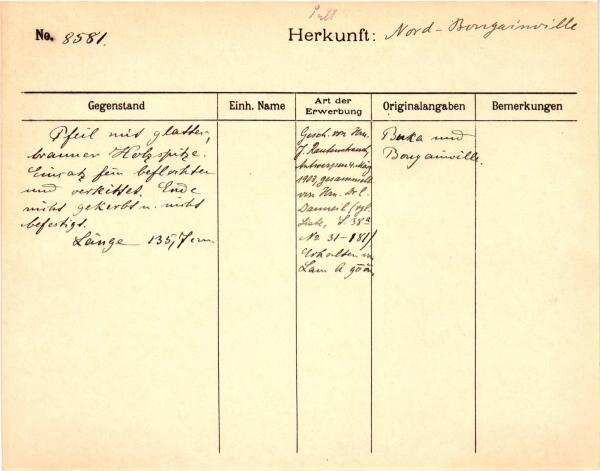 No. 8581.
Herkunft: Nord-Bougainville
Gegenstand
Einh. Name
Art der Erwerbung
Originalangaben
Bemerkungen
Pfeil mit glatter,
brauner Holzspitze.
Einsatz fein beflochten
und verkittet. Ende
nicht gekerbt u. nicht
befestigt.
Länge 135,7 cm
Gesch. von Hrn.
J. Rautenstrauch,
Antwerpen 4. März
1903, gesammelt
von Hrn. Dr.
(vgl.
Liste, S. 38a
No 31-181)
Erhalten in
Buka und
Bougainville.